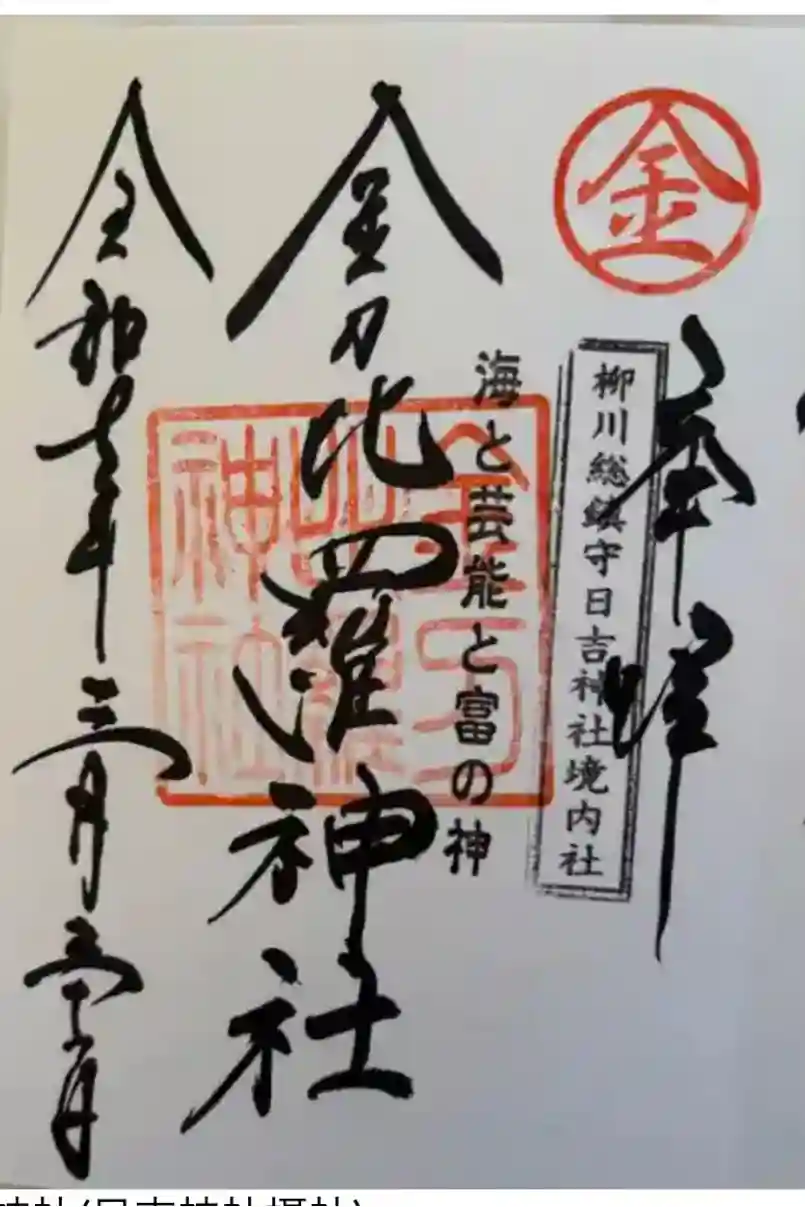 金
奉拝
柳川総鎮守日吉神社境内社
海と芸能と富の神
金刀比羅神社
金刀比羅神社
令和 年三月
神社(日吉神社摂社)